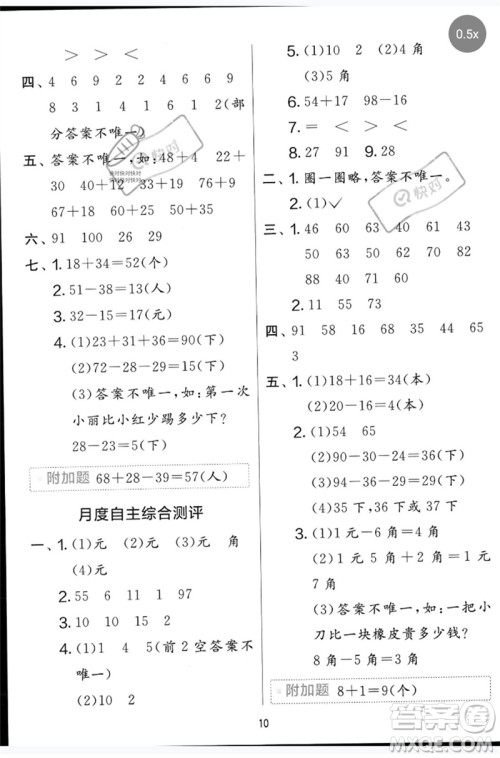 0.5x
> > >
四、4 6 9 2 4 6 6 9
8 3 1 4 1 6 2(部
分答案不唯一)
五、答案不唯一,如:48+4 22+
30 40+12 33+19 76+
67+18 60+25 50+35
六、91 100 26 29
七、1.18+34=52(个)
2.51-38=13(人)
3.32-15=17(元)
4.(1)23+31+36=90(下)
(2)72-28-29=15(下)
(3)答案不唯一,如:第一次
小丽比小红少踢多少下?
28-23=5(下)
附加题 68+28-39=57(人)
月度自主综合测评
一、1.(1)元 (2)元 (3)元 角
(4)元
2.55 6 11 1 97
3.10 10 15 2
4.(1)1 4 5(前2空答案不
唯一)
(2)10 2
5.(1)10 2 (2)4角
(3)5角
6.54+17 98-16
7.= < > <
8.27 91 9.28
二、1.圈一圈略,答案不唯一。
2.(1)✓
三、1.46 60 63 30 71
50 63 50 83 52
88 40 71 60
2.11 55
四、91 58 16 68 35 44 65
3
五、1.(1)18+16=34(本)
(2)20-16=4(本)
2.(1)54 65
(2)90-30-24=36(下)
(3)94-29-36=29(下)
3.(1)1元-6角=4角
(2)5角+2角=7角
7角
(3)答案不唯一,如:一把小
刀比一块橡皮贵多少钱?
8角-5角=3角
附加题 8+1=9(个)
快对
答案圈
MXQE.COM
10